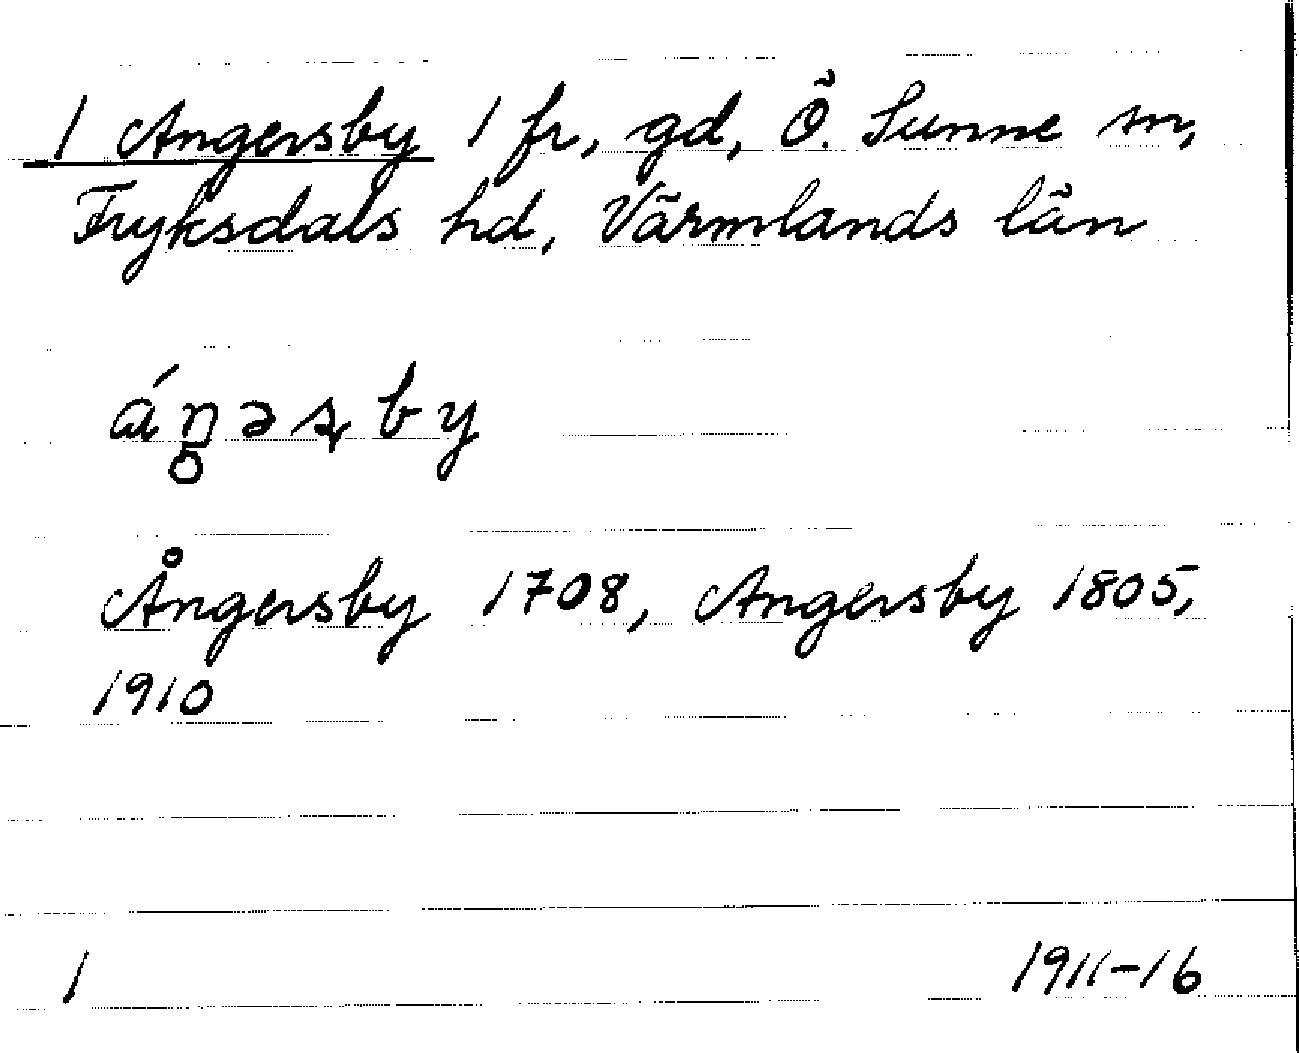 1 Angersby 1 fr, gd, Ö. Sunne sn,
Fryksdals hd, Värmlands län
áŋ̥əʂby
Ångersby 1708, Angersby 1805,
1910
1 1911-16